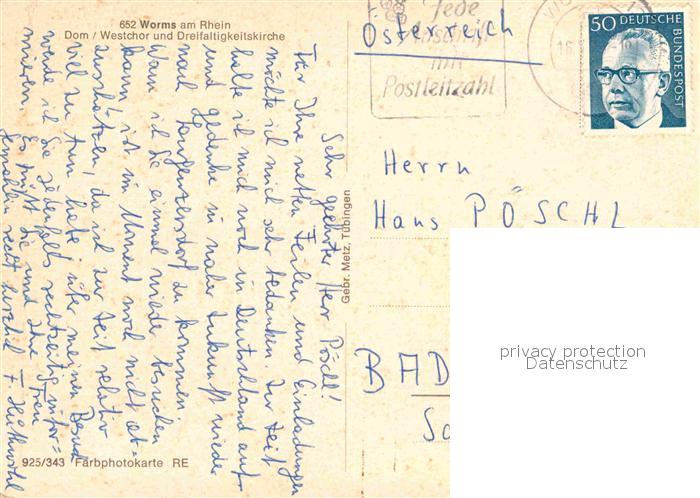 652 Worms am Rhein
Dom / Westchor und Dreifaltigkeitskirche
Sehr geehrter Herr Pöschl!
Für Ihre netten Zeilen und Einladungen
möchte ich mich sehr bedanken. Zur Zeit
halte ich mich noch in Deutschland auf
und gedenke in naher Zukunft wieder
nach zu kommen.
Wann ich Sie einmal wieder besuchen
kann, ist im Moment noch nicht ab-
zuschätzen, da ich zur Zeit relativ
viel zu tun habe. Über meinen Besuch
werde ich Sie jedenfalls rechtzeitig infor-
mieren.
Es grüßt Sie und Ihre Frau
Gemahlin recht herzlich
925/343 Farbphotokarte RE
Gebr. Metz, Tübingen
Österreich
Jede
mit
Postleitzahl
50 DEUTSCHE
BUNDESPOST
Herrn
Hans PÖSCHL
BAD
privacy protection
Datenschutz